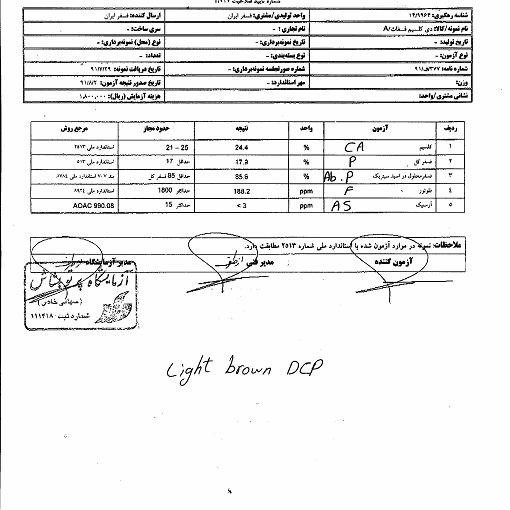 شناسه رهگیری: ۱۴/۹۹۶۴ واحد تولیدی/مشتری: فسفر ایران ارسال کننده: فسفر ایران
نام نمونه/کالا: دی کلسیم فسفات/A نام تجاری: - سری ساخت: -
تاریخ تولید: - تاریخ نمونه‌برداری: - نوع (محل) نمونه‌برداری: -
نوع آزمون: - نوع بسته‌بندی: - تعداد: -
شماره نامه: شماره صورتجلسه نمونه‌برداری: - تاریخ دریافت نمونه: ۹۱/۷/۲۹
وزن: مهر استاندارد: - تاریخ صدور نتیجه آزمون: ۹۱/۸/۲
نشانی مشتری/واحد: هزینه آزمایش (ریال): ۱,۸۰۰,۰۰۰
ردیف آزمون واحد نتیجه حدود مجاز مرجع روش
۱ کلسیم CA % 24.4 21 - 25 استاندارد ملی ۲۵۱۳
۲ فسفر کل P % 17.9 حداقل 17 استاندارد ملی ۵۱۳
۳ فسفر محلول در اسید سیتریک Ab.P % 85.6 حداقل 85 فسفر کل
۴ فلوئور F ppm 188.2 حداکثر 1800 استاندارد ملی
۵ آرسنیک AS ppm < 3 حداکثر 15 AOAC 990.08
ملاحظات: نمونه در موارد آزمون شده با استاندارد ملی شماره ۲۵۱۳ مطابقت دارد.
آزمون کننده مدیر فنی مدیر آزمایشگاه
آزمایشگاه پرتوپیشتاز
(سهامی خاص)
شماره ثبت ۱۱۱۴۱۸
Light brown DCP